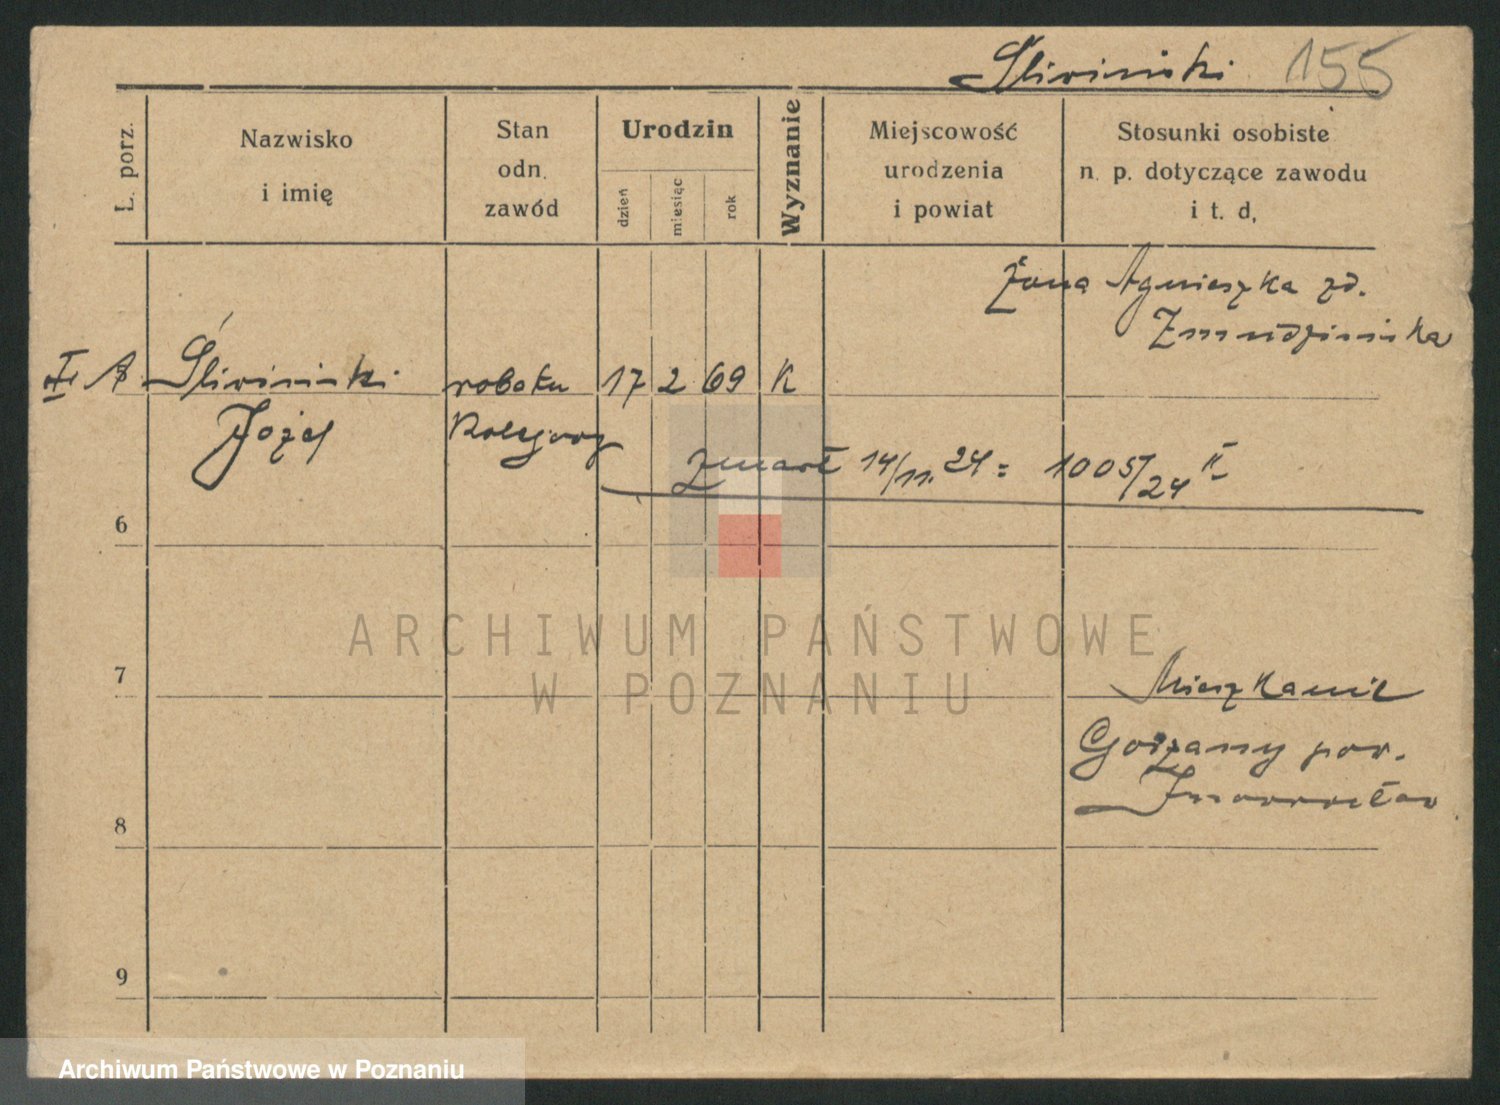 Śliwiński 155
L. porz.
Nazwisko
i imię
Stan
odn.
zawód
Urodzin
dzień
miesiąc
rok
Wyznanie
Miejscowość
urodzenia
i powiat
Stosunki osobiste
n. p. dotyczące zawodu
i t. d.
żona Agnieszka zd.
Żmudzińska
Śliwiński
robotn 17 2 69 K
Józef
Kolejowy
zmarł 14/11. 24 = 1005/24 II
6
7
Mieszkanie
pow.
Inowrocław
8
9
ARCHIWUM PAŃSTWOWE
W POZNANIU
Archiwum Państwowe w Poznaniu